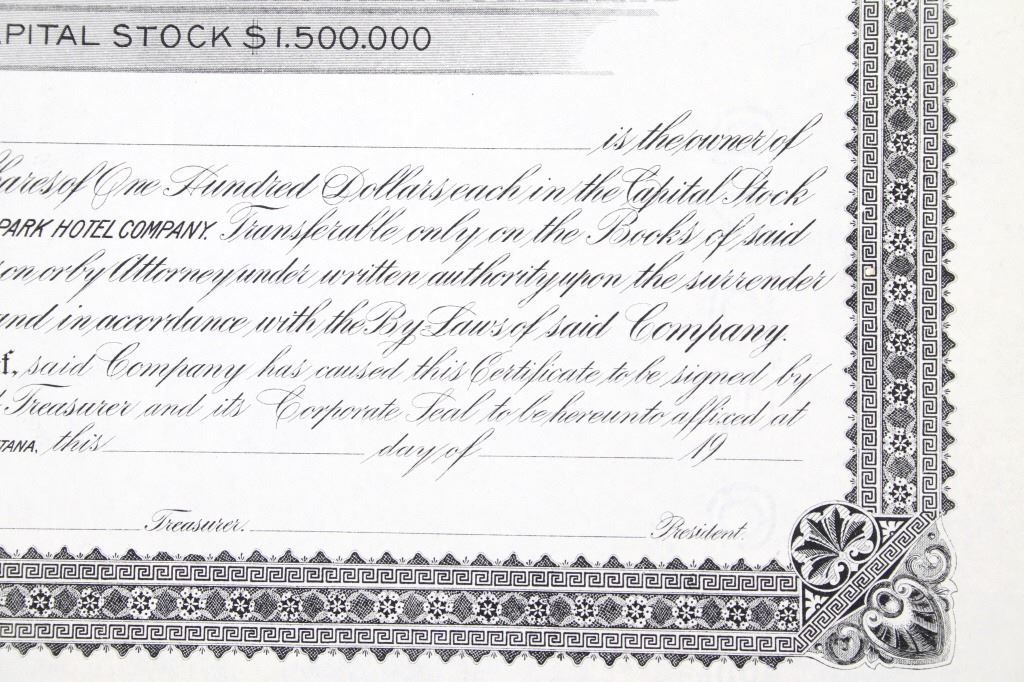 CAPITAL STOCK $1.500.000
is the owner of
Shares of One Hundred Dollars each in the Capital Stock
PARK HOTEL COMPANY. Transferable only on the Books of said
on or by Attorney under written authority upon the surrender
and in accordance with the By-Laws of said Company.
f, said Company has caused this Certificate to be signed by
Treasurer and its Corporate Seal to be hereunto affixed at
TANA, this day of 19
Treasurer. President.